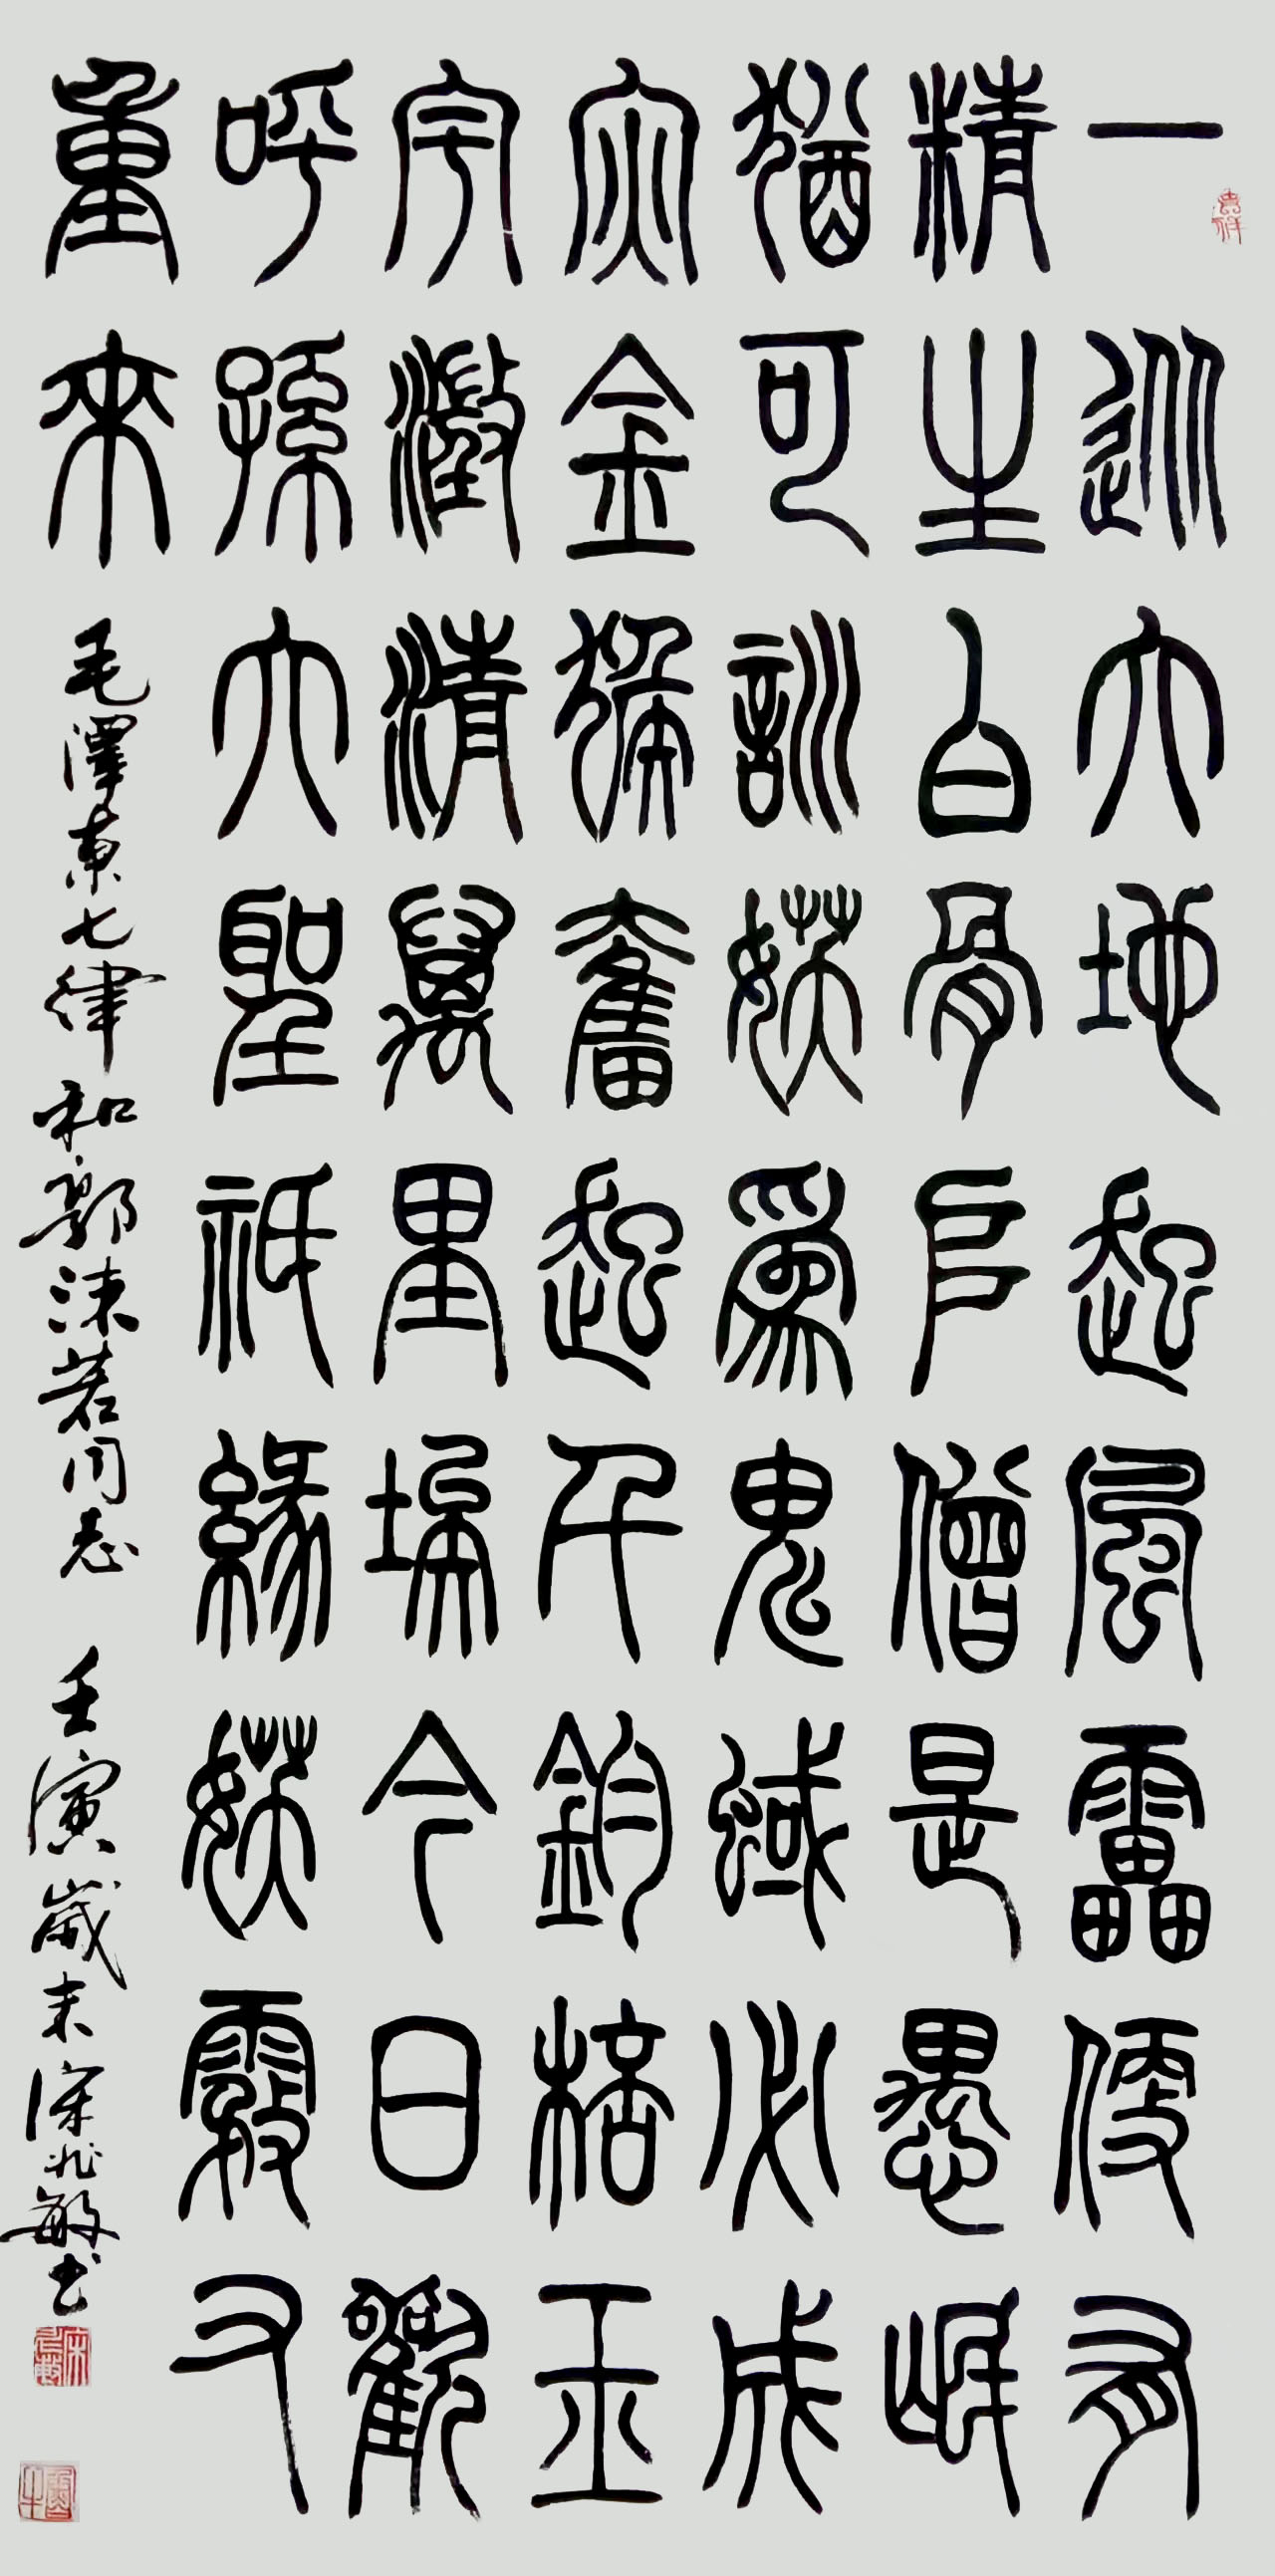 一從大地起風靁便有
精生白骨𠂤僧是愚氓
猶可訓妖爲鬼蜮必成
灾金猴奮起千鈞棓玉
宇澂清萬里埃今日歡
呼孫大聖祇緣妖霧又
重來
毛澤東七律和郭沫若同志 壬寅歲末宋兆敏书